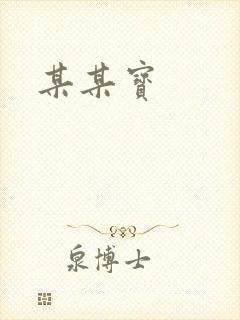 某某寶
泉博士